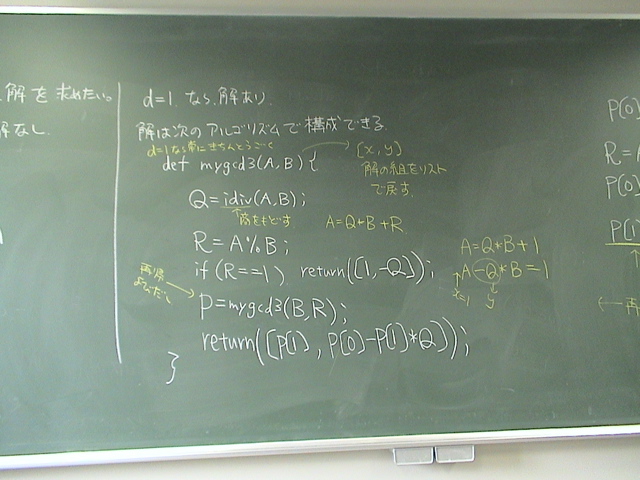 解を求めたい。
解なし
d=1. なら. 解あり.
解は次のアルゴリズムで構成できる
d=1なら常にきちんとうごく
def mygcd3(A,B){
[x,y]
解の組をリスト
で戻す.
Q=idiv(A,B);
商をもどす
A=Q*B+R
R=A%B;
if(R==1) return([1,-Q]);
再帰
よびだし
P=mygcd3(B,R);
return([P[1], P[0]-P[1]*Q]);
}
A=Q*B+1
A-Q*B=1
x=1
y
P[0]
R=A
P[0]
P[1]
再